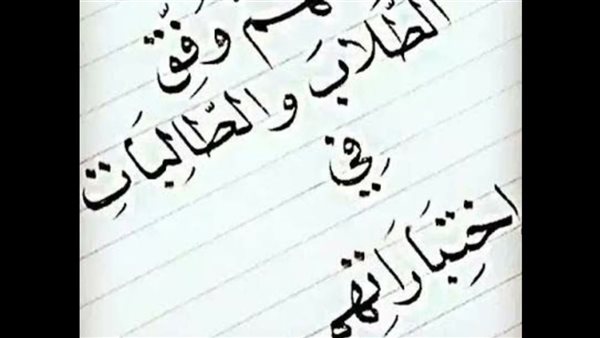 ـهم وَفِّق
الطُّلَّابَ والطَّالِبَاتِ
فِي
اخْتِبَارَاتِهِم